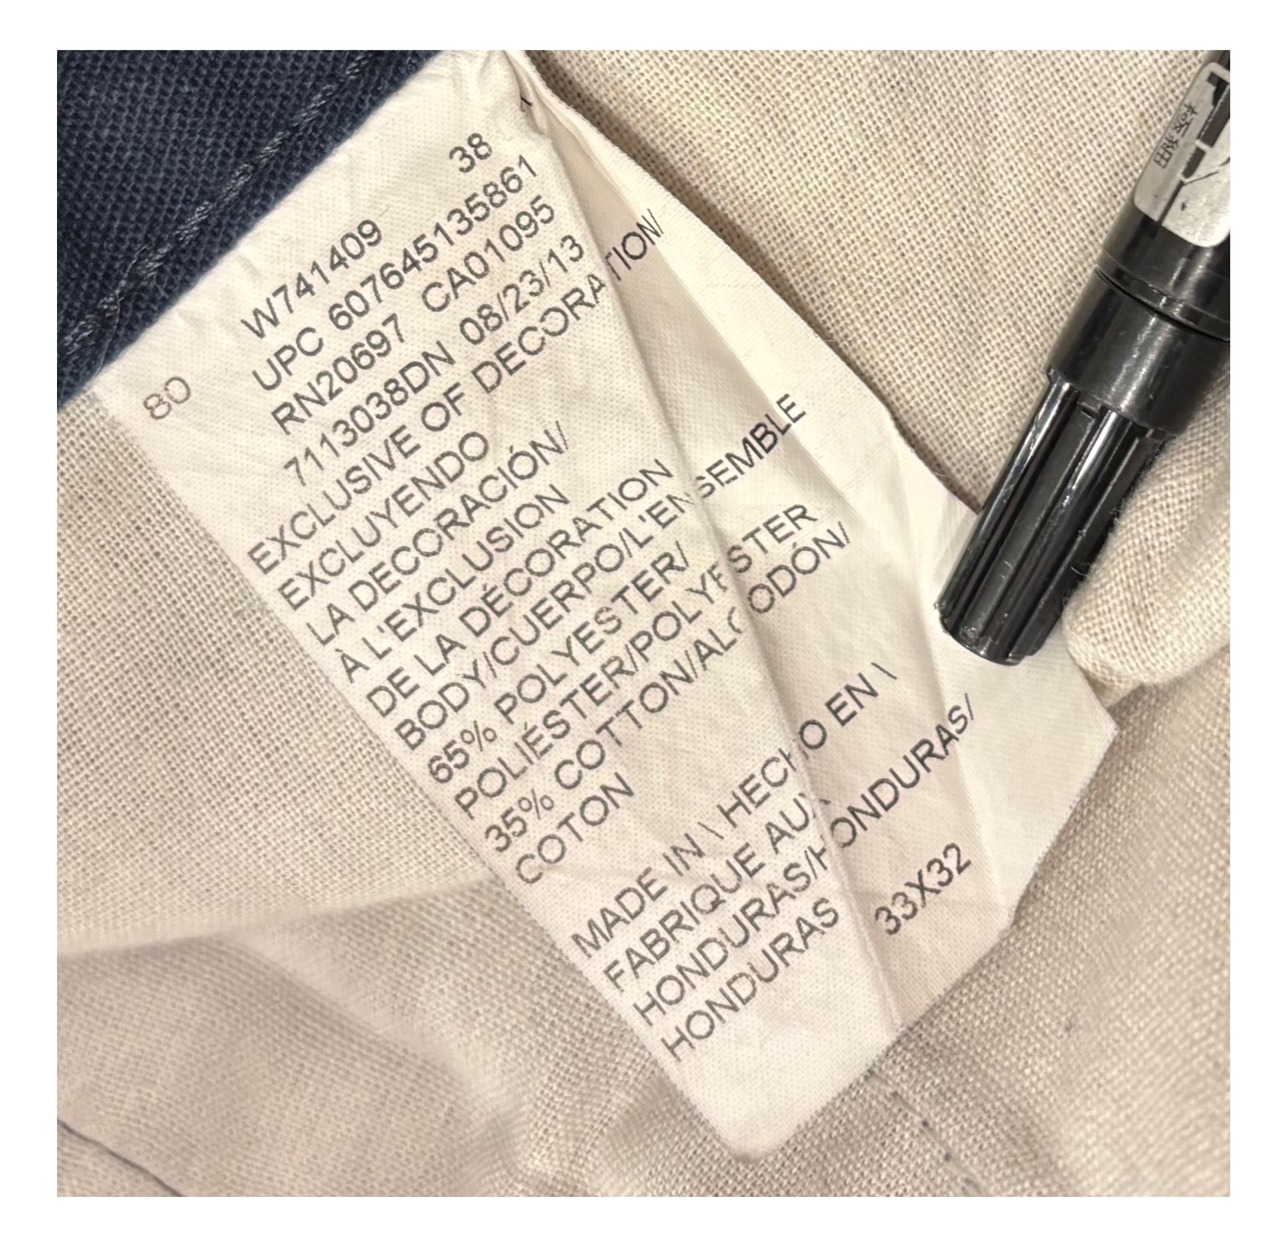 38
W741409
UPC 607645135861
RN20697 CA01095
80
7113038DN 08/23/13
EXCLUSIVE OF DECORATION/
EXCLUYENDO
LA DECORACIÓN/
À L'EXCLUSION
DE LA DÉCORATION
BODY/CUERPO/L'ENSEMBLE
65% POLYESTER/
POLIÉSTER/POLYESTER
35% COTTON/ALGODÓN/
COTON
MADE IN \ HECHO EN \
FABRIQUE AUX
HONDURAS/HONDURAS/
HONDURAS 33X32